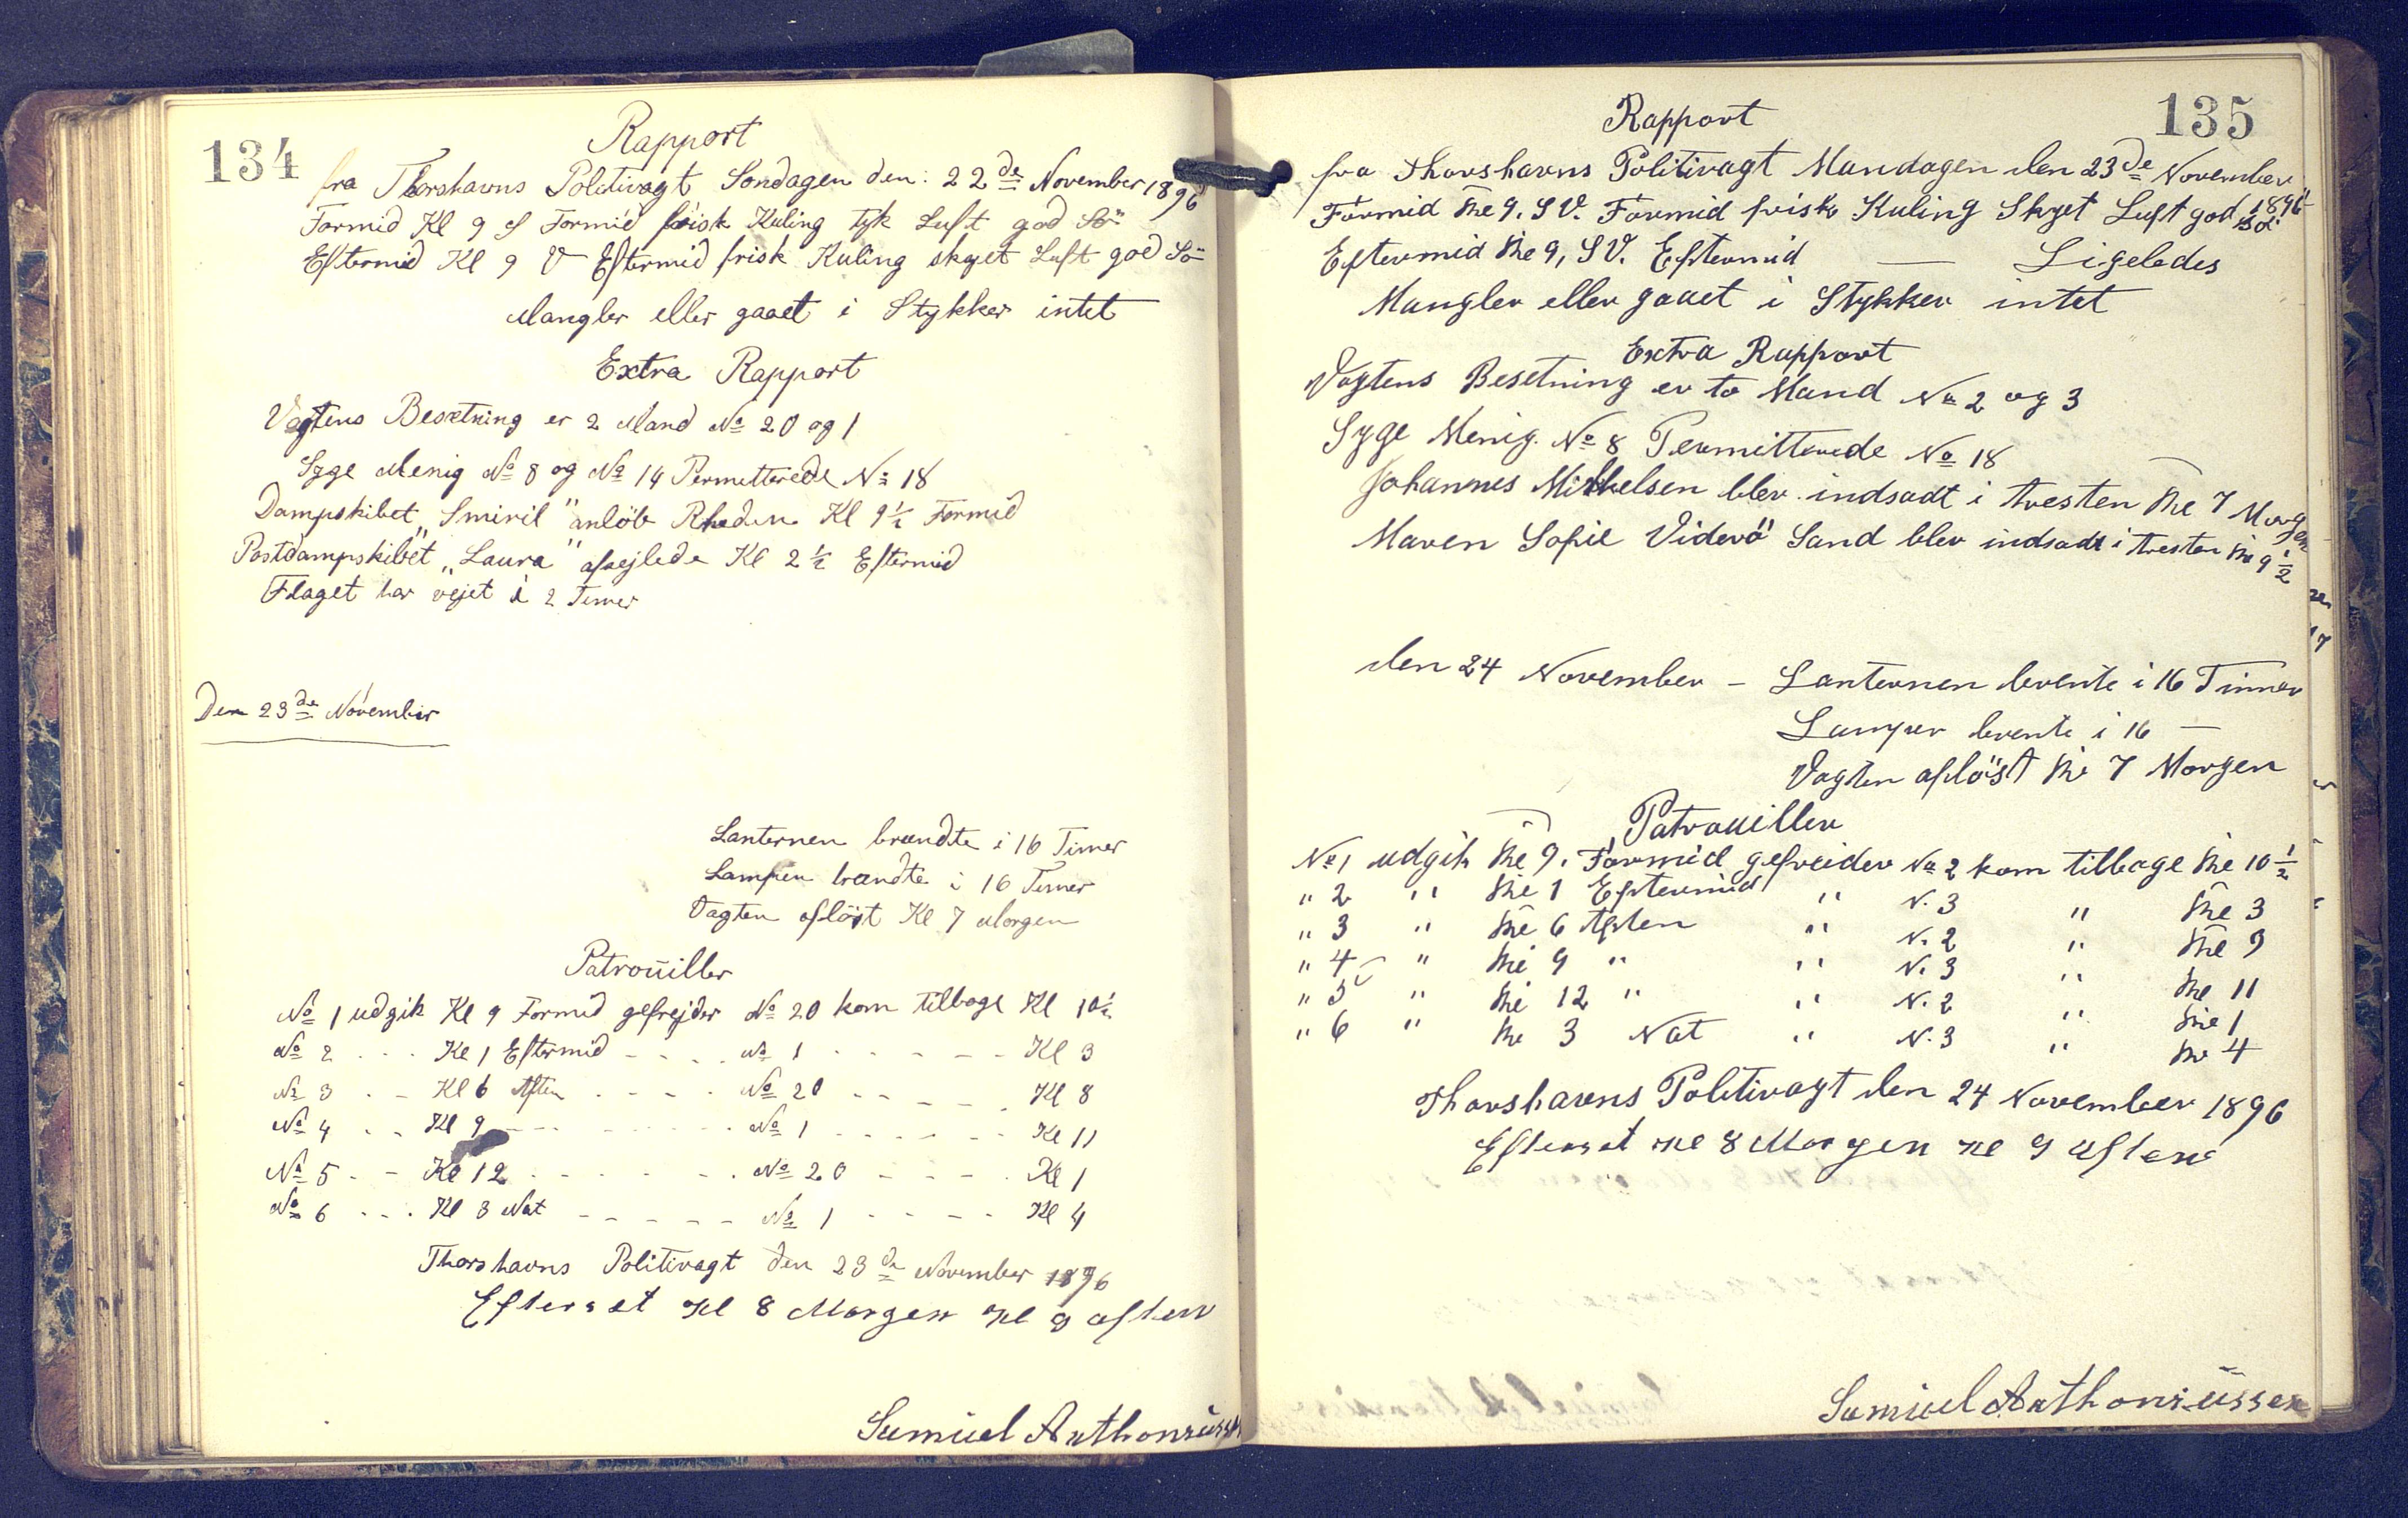 134
Rapport
fra Thorshavns Politivagt Søndagen den: 22de November 1896
Formid Kl 9 S Formid frisk Kuling tyk Luft god Sö
Eftermid Kl 9 V Eftermid frisk Kuling skyet Luft god Sö
Mangler eller gaaet i Stykker intet
Extra Rapport
Vagtens Besetning er 2 Mand No 20 og 1
Syge Menig No 8 og No 14 Permitterede No 18
Dampskibet „Smiril" anlöb Rheden Kl 9½ Formid
Postdampskibet „Laura" afsejlede Kl 2½ Eftermid
Flaget har vejet i 2 Timer
Den 23de November
Lanternen brændte i 16 Timer
Lampen brændte i 16 Timer
Vagten aflöst Kl 7 Morgen
Patrouiller
No 1 udgik Kl 9 Formid gefrejder No 20 kom tilbage Kl 10½
No 2 - - - Kl 1 Eftermid - - - - No 1 - - - - - - Kl 3
No 3 - - Kl 6 Aften - - - - No 20 - - - - - Kl 8
No 4 - - Kl 9 - - - - - - - No 1 - - - - - - Kl 11
No 5 - - Kl 12 - - - - - - No 20 - - - - Kl 1
No 6 - - - Kl 3 Nat - - - - - No 1 - - - - Kl 4
Thorshavns Politivagt den 23de November 1896
Efterset Kl 8 Morgen Kl 9 aften
Samuel Anthoniüssen
135
Rapport
fra Thorshavns Politivagt Mandagen den 23de November
1896
Formid Kl 9. SV. Formid frisk Kuling Skyet Luft god Sö
Eftermid Kl 9, SV. Eftermid — Ligeledes
Mangler eller gaaet i Stykker intet
Extra Rapport
Vagtens Besetning er to Mand No 2 og 3
Syge Menig. No 8 Permitterede No 18
Johannes Mikkelsen blev indsadt i Aresten Kl 7 Morgen
Maren Sofie Viderö Sand blev indsadt i Aresten Kl 9½
den 24 November - Lanternen brente i 16 Timer
Lamper brente i 16 —
Vagten aflöst Kl 7 Morgen
Patrouiller
No 1 udgik Kl 9. Formid gefreider No 2 kom tilbage Kl 10½
" 2 " Kl 1 Eftermid " N. 3 " Kl 3
" 3 " Kl 6 Aften " N. 2 " Kl 9
" 4 " Kl 9 " " N. 3 " Kl 11
" 5 " Kl 12 " " N. 2 " Kl 1
" 6 " Kl 3 Nat " N. 3 " Kl 4
Thorshavns Politivagt den 24 November 1896
Efterset Kl 8 Morgen Kl 9 aften
Samuel Anthoniüssen